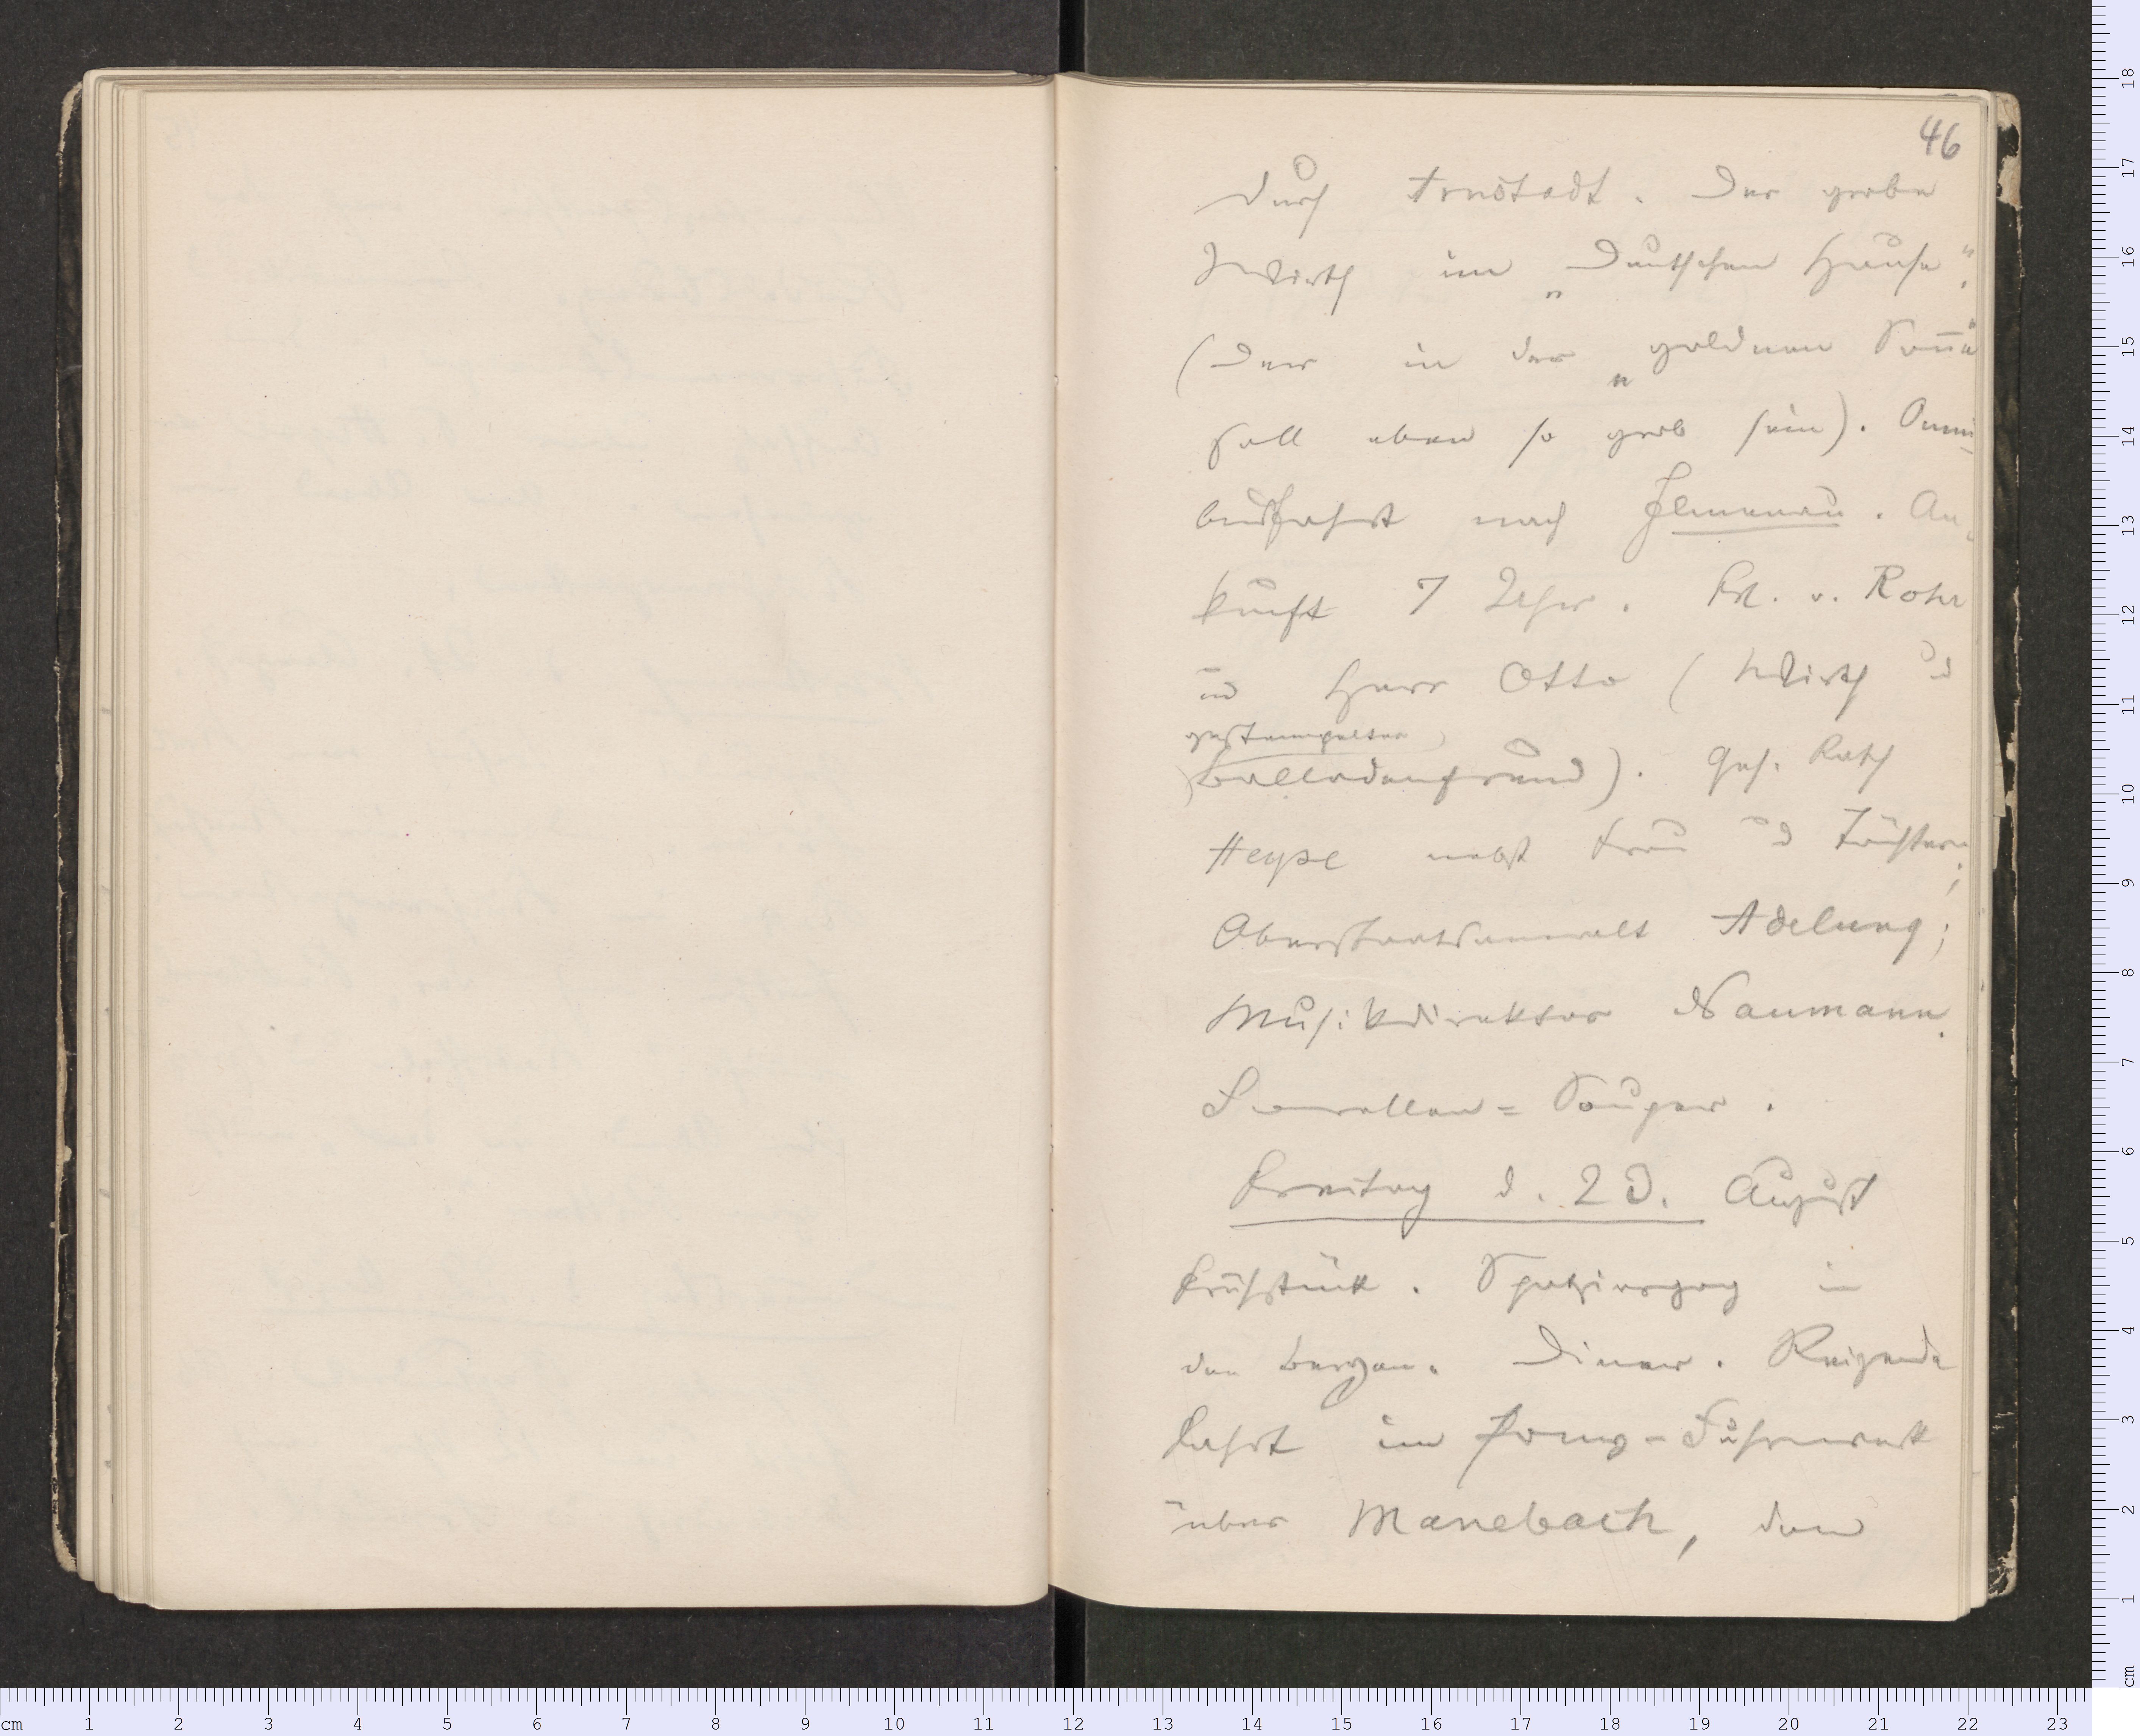 46
durch Arnstadt. Der grobe
Wirth im „Deutschen Hause“.
(Der in der „goldnen Sonne“
soll eben so grob sein). Omni-
busfahrt nach Ilmenau. An-
kunft 7 Uhr. Frl. v. Rohr
und Herr Otto (Wirth und
gestempelter
Balladenfreund). Geh. Rath
Heyse nebst Frau und Töchtern;
Oberstaatsanwalt Adelung;
Musikdirektor Naumann.
Forellen-Souper.
Freitag d. 23. August
Frühstück. Spatziergang in
den Bergen. Diner. Reizende
Fahrt im Pony-Fuhrwerk
über Manebach, den